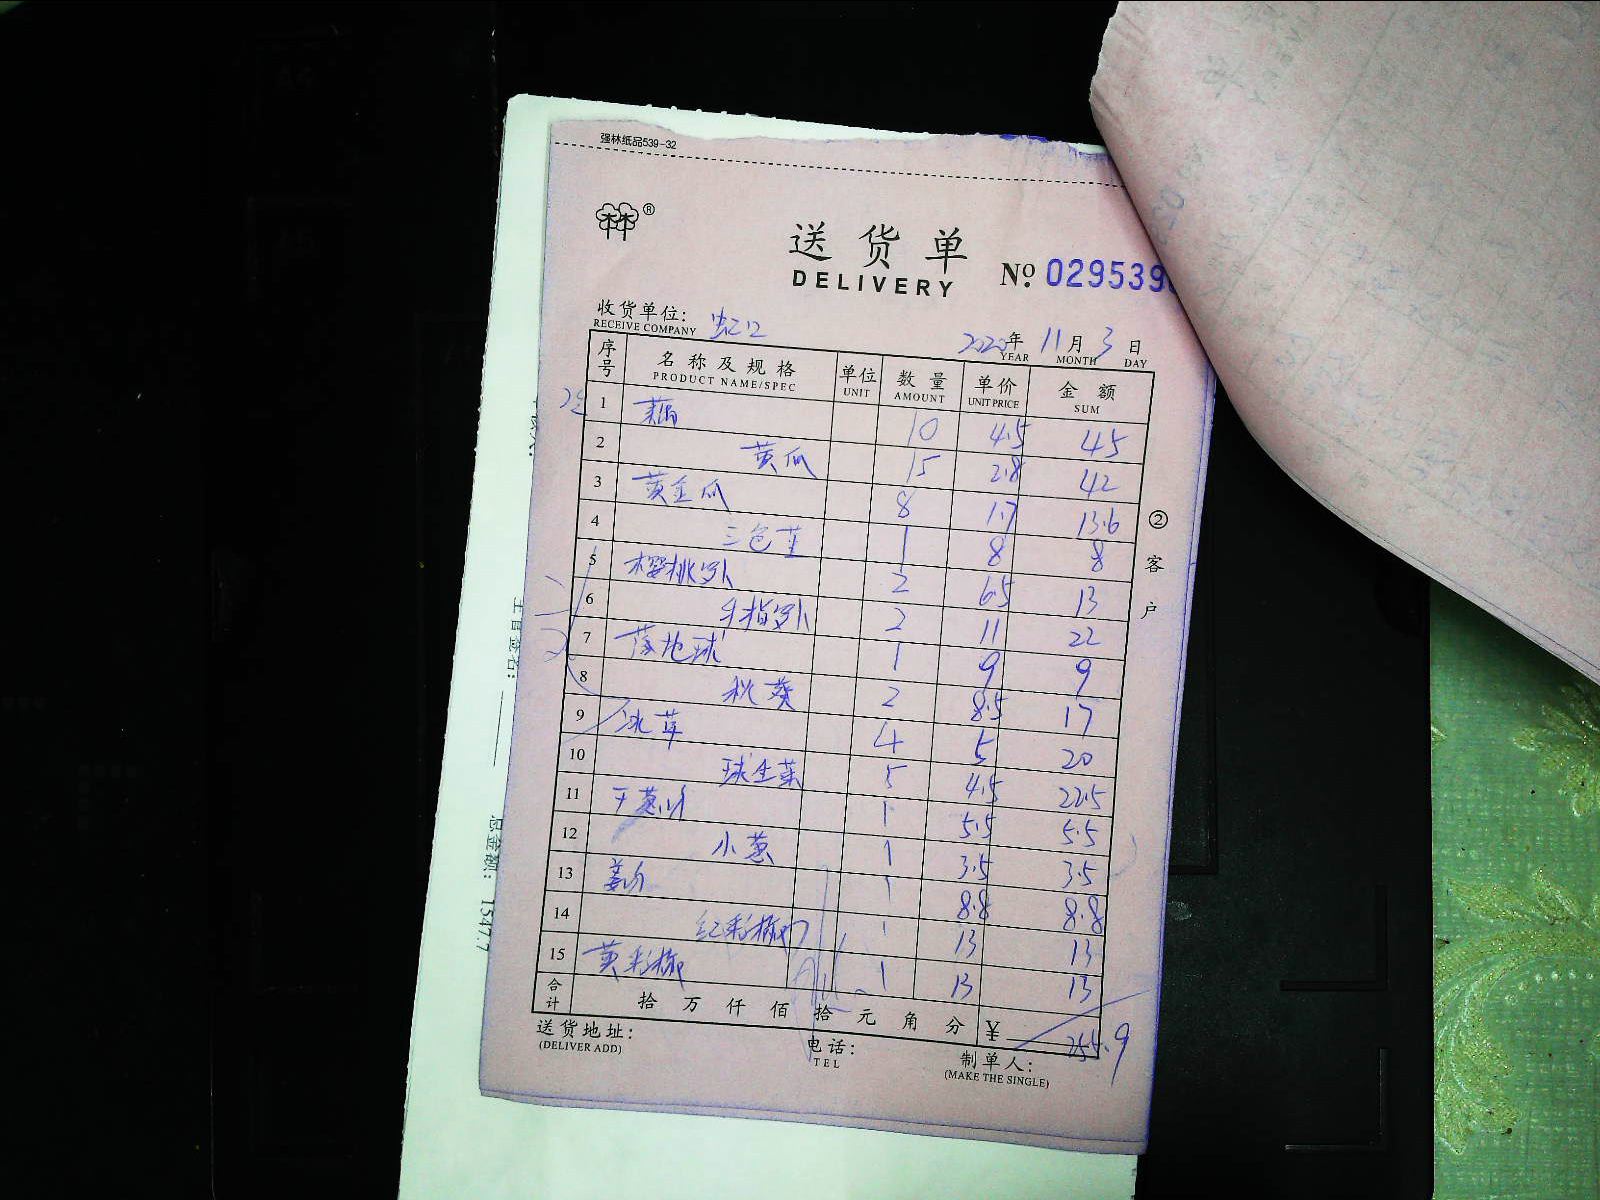 强林纸品539-32
林林®
送货单
DELIVERY
№ 029539
收货单位: 虹口
RECEIVE COMPANY
2020年 11月 3日
YEAR MONTH DAY
序号 名称及规格 单位 数量 单价 金额
PRODUCT NAME/SPEC UNIT AMOUNT UNIT PRICE SUM
1 藕 10 4.5 45
2 黄瓜 15 2.8 42
3 黄金瓜 8 1.7 13.6
4 三色堇 1 8 8
5 樱桃萝卜 2 6.5 13
6 手指萝卜 2 11 22
7 落地球 1 9 9
8 秋葵 2 8.5 17
9 冰草 4 5 20
10 球生菜 5 4.5 22.5
11 干葱 1 5.5 5.5
12 小葱 1 3.5 3.5
13 姜 1 8.8 8.8
14 红彩椒 1 13 13
15 黄彩椒 1 13 13
合计 拾 万 仟 佰 拾 元 角 分 ¥ 255.9
送货地址:
(DELIVER ADD)
电话:
TEL
制单人:
(MAKE THE SINGLE)
②客户
主管签名:
总金额: 1547.7